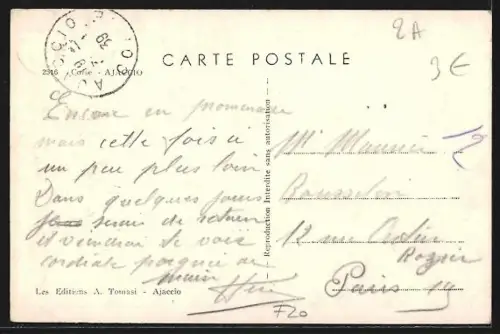 2A
3€
AJACCIO
39
CARTE POSTALE
2916 Corse - AJACCIO
Encore en promenade
mais cette fois ci
un peu plus loin
Dans quelques jours
serais de retour
et viendrai te voir
cordiale poignée de
main
Les Editions A. Tomasi - Ajaccio
Reproduction Interdite sans autorisation
Mr Maurice
12 rue
Rozier
Paris 14
F20